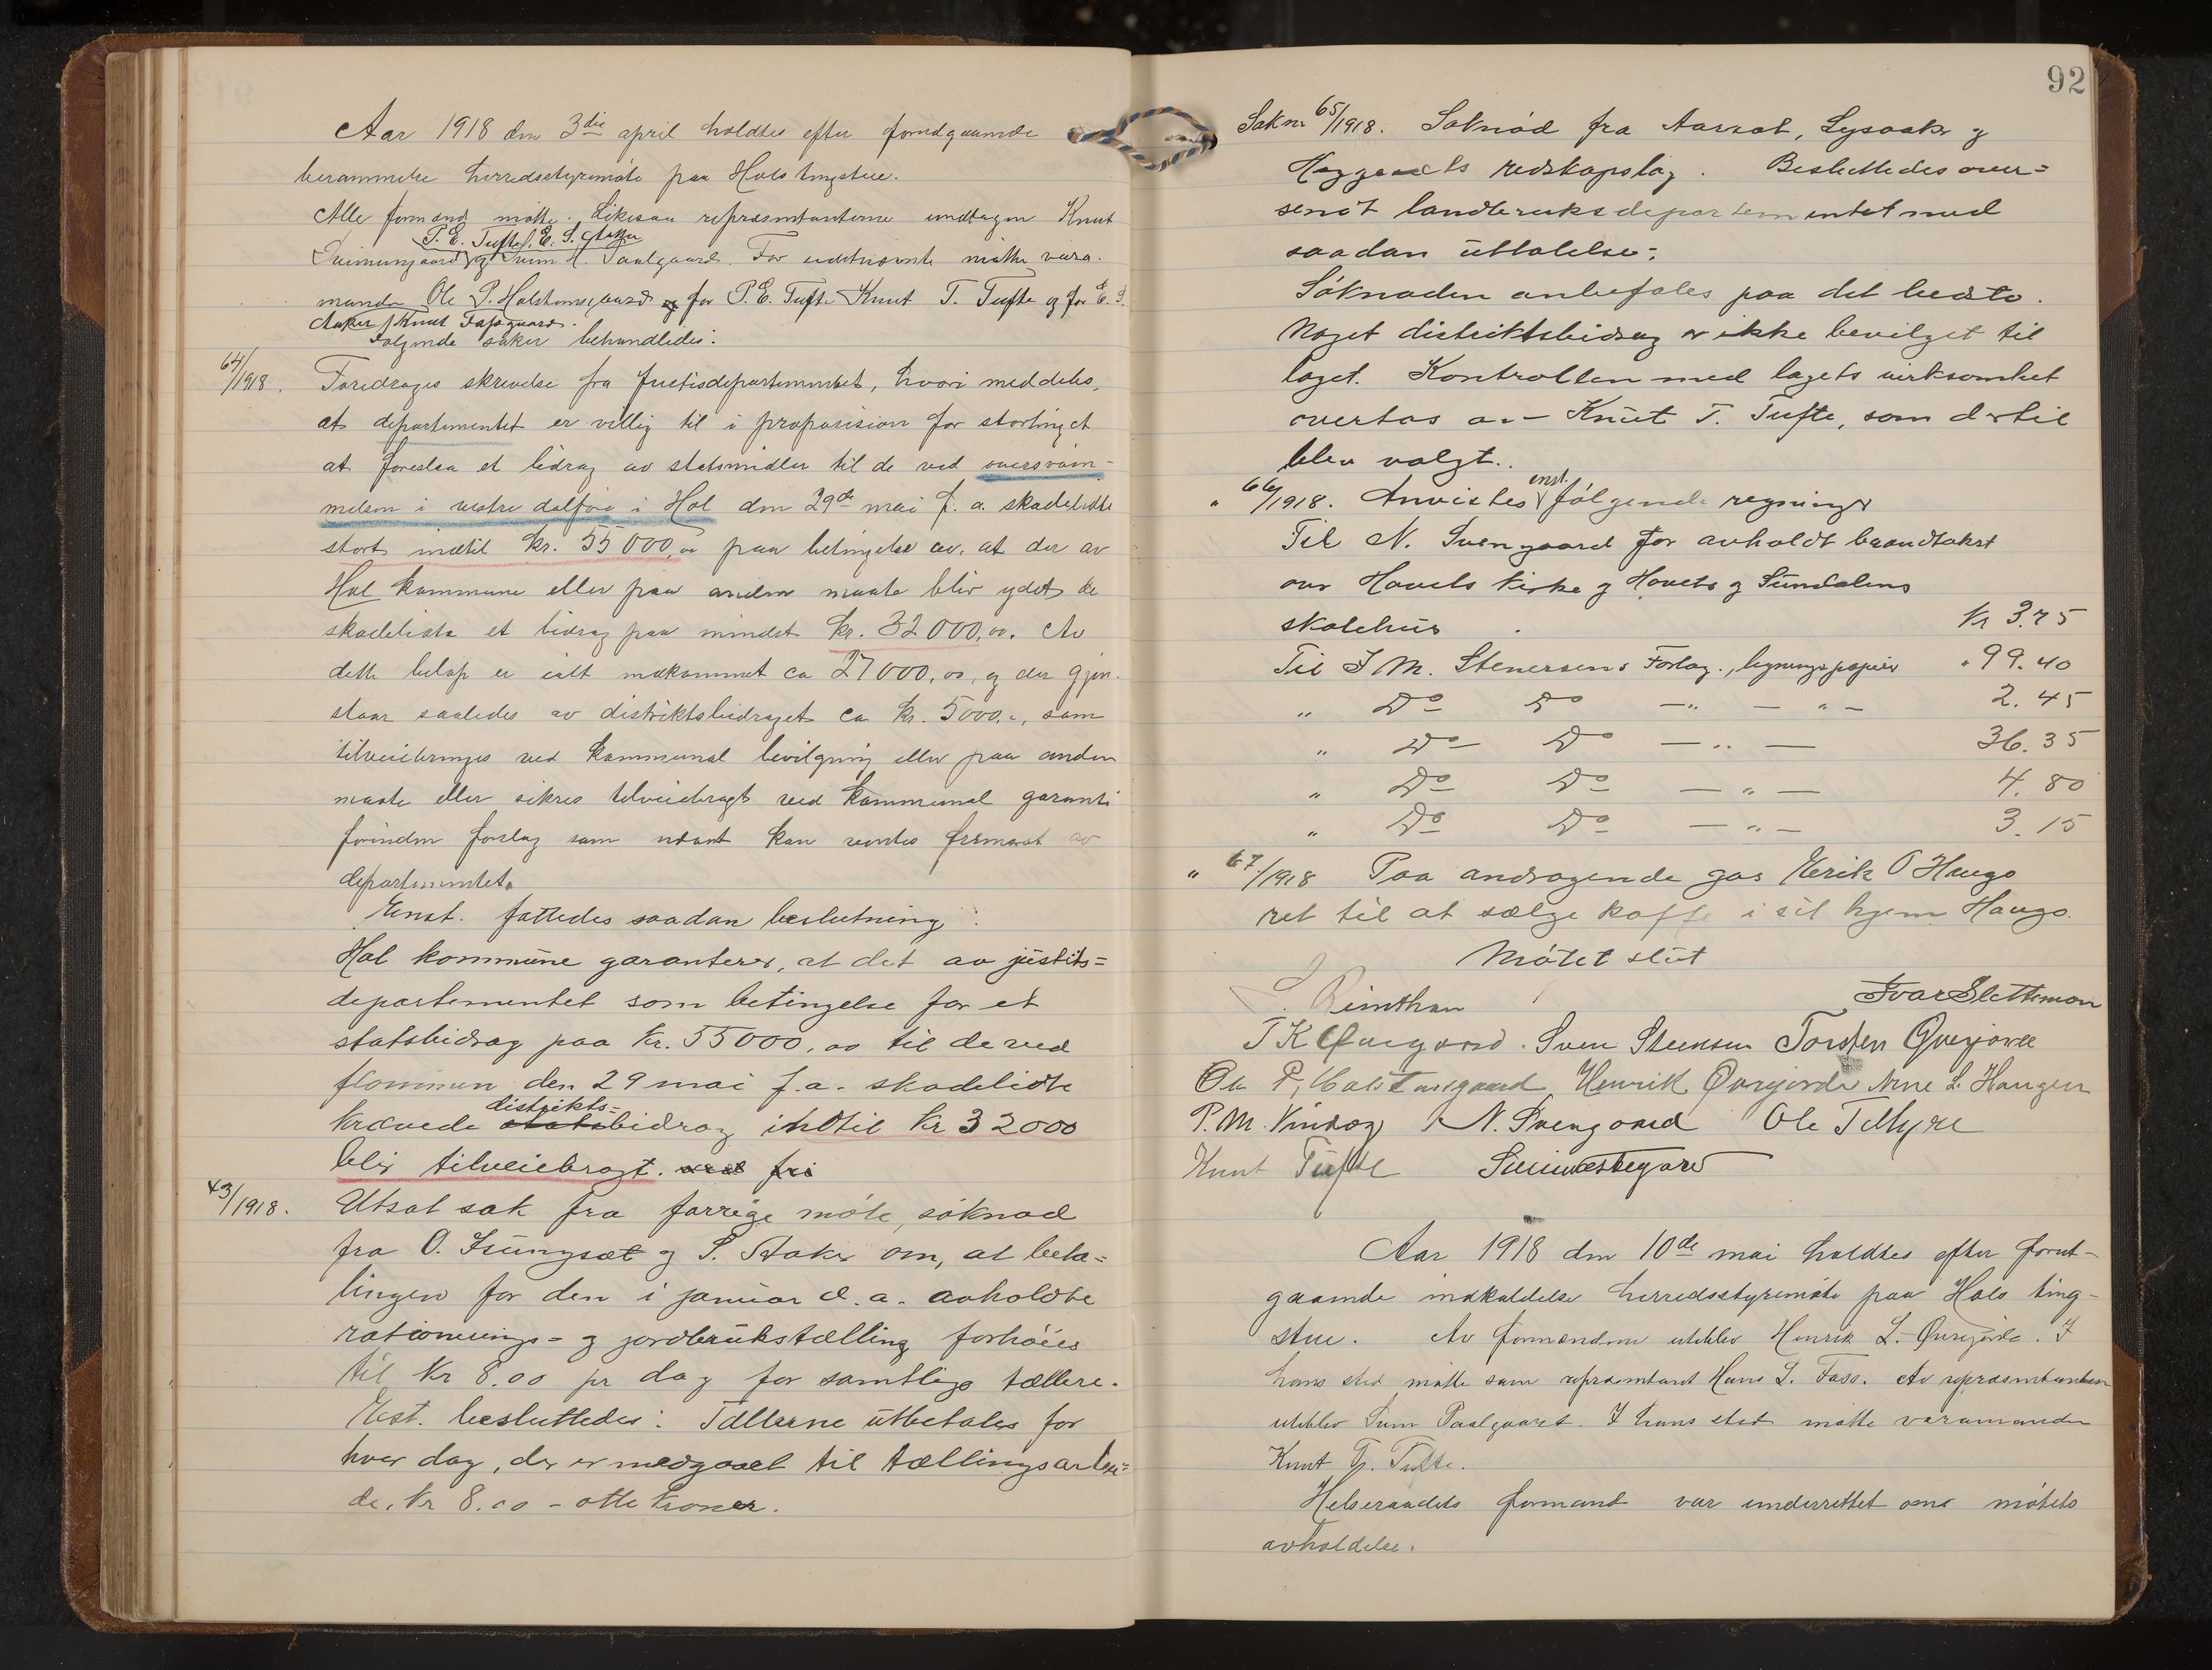 Aar 1918 den 3die april holdtes efter forutgaaende
berammelse herredsstyremöte paa Hols tingstue.
Alle formænd mötte. Likesaa repræsentanterne undtagen Knut
P. E. Tufte, E. S. Aaker
og Svein H. Paalgaard. For mötte vara-
mænden Ole P. Holstensgaard og for P. E. Tufte Knut T. Tufte og for E. S.
Aaker Knut
Følgende saker behandledes:
64/1918. Foredroges skrivelse fra Justisdepartementet, hvori meddeles,
at departementet er villig til i proposision for stortinget
at foreslaa et bidrag av statsmidler til de ved oversvøm-
melsen i vestre dalføre i Hol den 29de mai f. a. skadelidte
stort indtil kr. 55000,00 paa betingelse av, at der av
Hol kommune eller paa anden maate blir ydet de
skadelidte et bidrag paa mindst kr. 32000,00. Av
dette beløp er ialt indkommet ca 27000,00, og der gjen-
staar saaledes av distriktsbidraget ca kr. 5000.-, som
tilveiebringes ved kommunal bevilgning eller paa anden
maate eller sikres tilveiebragt ved kommunal garanti
forinden forslag som nævnt kan ventes fremsat av
departementet.
Enst. fattedes saadan beslutning:
Hol kommune garanterer, at det av justits=
departementet som betingelse for et
statsbidrag paa kr. 55000,00 til de ved
flommen den 29 mai f.a. skadelidte
distrikts=
krævede statsbidrag indtil kr 32000
blir tilveiebragt. fri
43/1918. Utsat sak fra forrige möte, söknad
fra O. Isungset og S. Aaker om, at beta=
lingen for den i januar d.a. avholdte
rationerings- og jordbrukstælling forhöies
til kr 8.00 pr dag for samtlige tællere.
Enst. besluttedes: Tællerne utbetales for
hver dag, der er medgaaet til tællingsarbei=
de, kr 8.00 - otte kroner.
92
Sak nr 65/1918. Söknad fra Aarset, Lysaaker og
redskapslag. Besluttedes over=
sendt landbruksdepartementet med
saadan uttalelse:
Söknaden anbefales paa det bedste.
Noget distriktsbidrag er ikke bevilget til
laget. Kontrollen med lagets virksomhet
overtas av Knut T. Tufte, som dertil
blev valgt.
enst.
" 66/1918. Anvistes følgende regninger
Til N. Svengaard for avholdt brandtakst
over Hovets kirke og Hovets og Sundalens
skolehus kr 3.75
Til I M. Stenersens Forlag., ligningspapir " 99.40
" Do Do — " — — " — 2.45
" Do Do — " — 36.35
" Do Do — " — 4.80
" Do Do — " — 3.15
" 67/1918 Paa andragende gas Eerik O Haugo
ret til at sælge kaffe i sit hjem Haugo.
Mötet slut
Ivar Slettemoen
T K Sven Steensen Torsten Qverjorde
Ole P. Holstensgaard Henrik Qverjorde Arne L. Haugen
P. M. Vindeg N. Svengaard Ole T Myre
Knut Tufte
Aar 1918 den 10de mai holdtes efter forut-
gaaende indkaldelse herredsstyremöte paa Hols ting-
stue. Av formændene uteblev Henrik L. Qverjorde. I
hans sted mötte som repræsentant Hans L. Foss. Av repræsentanterne
uteblev Svein Paalgaard. I hans sted mötte varamanden
Knut T. Tufte.
Helseraadets formand var underrettet om mötets
avholdelse.